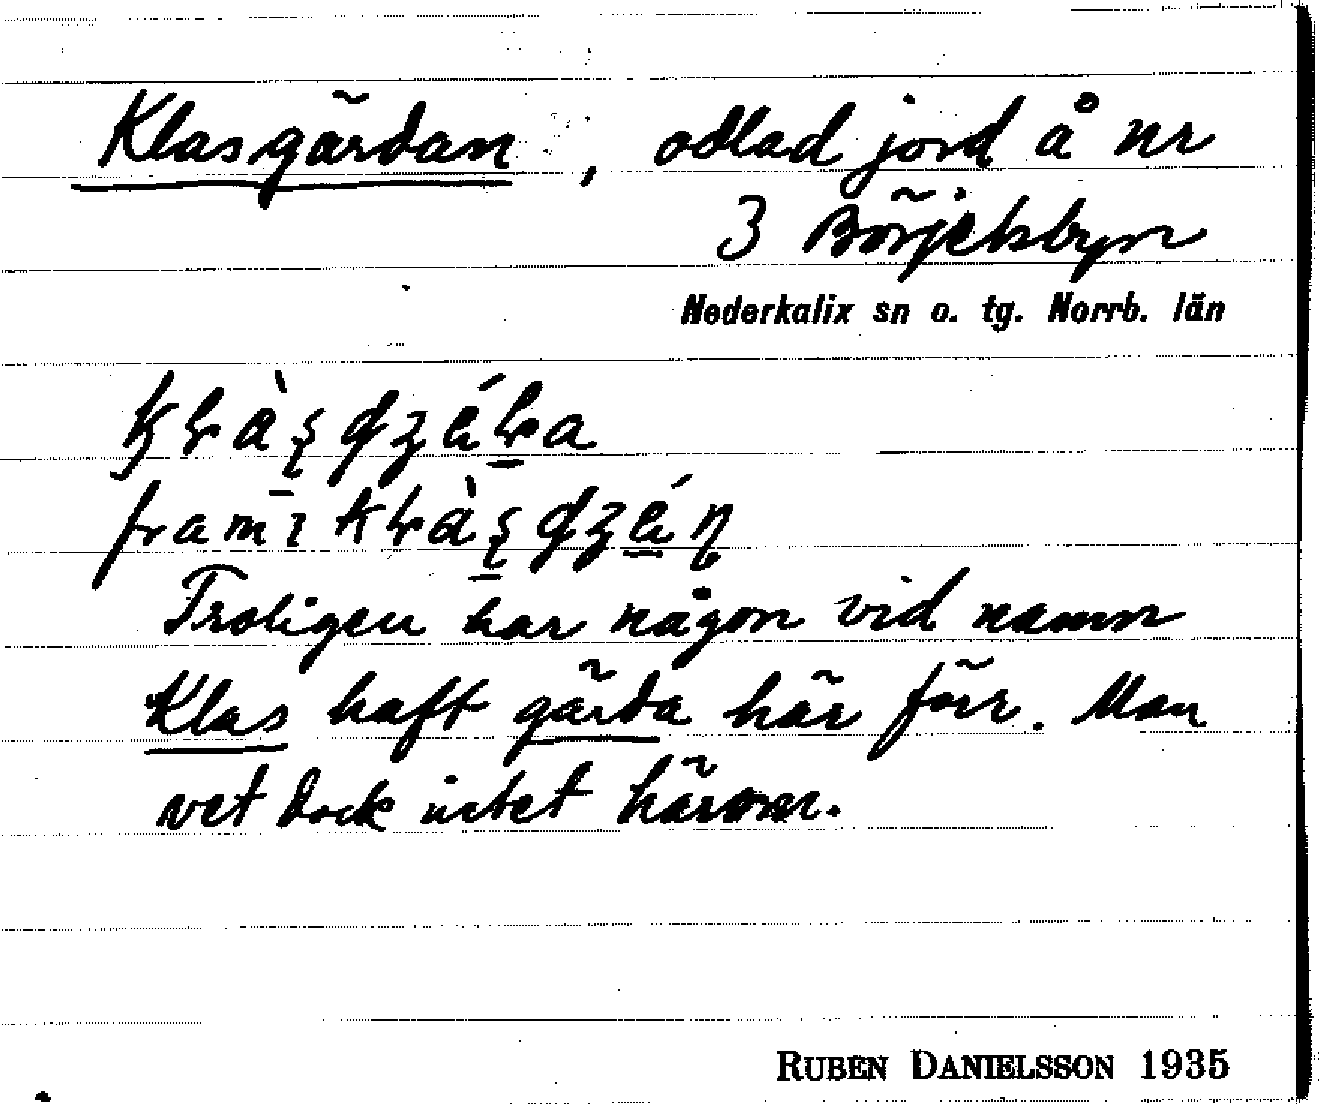 Klasgärdan, odlad jord å nr
3 Börjelsbyn
Nederkalix sn o. tg. Norrb. län
framı
Troligen har någon vid namn
Klas haft gärda här förr. Man
vet dock intet härom.
RUBEN DANIELSSON 1935